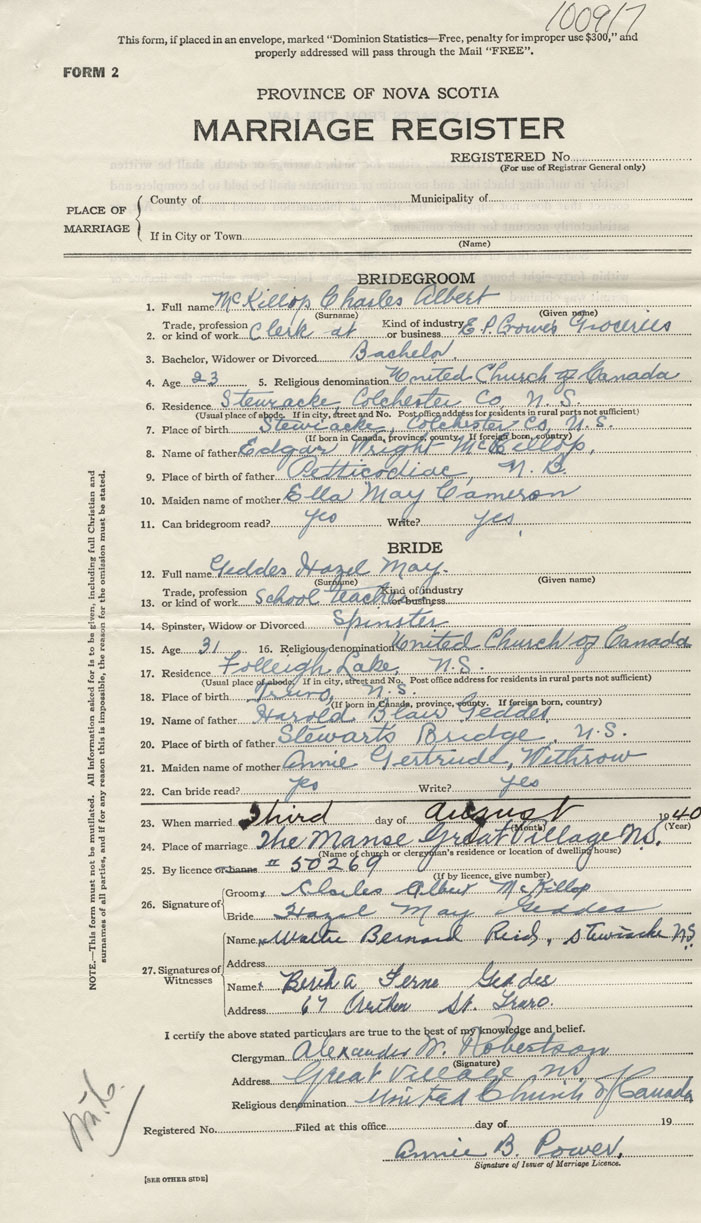 100917
This form, if placed in an envelope, marked "Dominion Statistics—Free, penalty for improper use $300," and
properly addressed will pass through the Mail "FREE".
FORM 2
PROVINCE OF NOVA SCOTIA
MARRIAGE REGISTER
REGISTERED No.
(For use of Registrar General only)
PLACE OF MARRIAGE
County of Municipality of
If in City or Town
(Name)
BRIDEGROOM
1. Full name McKillop Charles Albert
(Surname) (Given name)
2. Trade, profession or kind of work Clerk at Kind of industry or business E.P. Crowe's Groceries
3. Bachelor, Widower or Divorced Bachelor.
4. Age 23 5. Religious denomination United Church of Canada
6. Residence Stewiacke, Colchester Co, N.S.
(Usual place of abode. If in city, street and No. Post office address for residents in rural parts not sufficient)
7. Place of birth Stewiacke, Colchester Co, N.S.
(If born in Canada, province, county. If foreign born, country)
8. Name of father Edgar Wright McKillop,
9. Place of birth of father Petticodiac, N.B.
10. Maiden name of mother Ella May Cameron
11. Can bridegroom read? yes Write? yes,
BRIDE
12. Full name Geddes Hazel May.
(Surname) (Given name)
13. Trade, profession or kind of work School teacher Kind of industry or business
14. Spinster, Widow or Divorced Spinster
15. Age 31 16. Religious denomination United Church of Canada
17. Residence Folleigh Lake, N.S.
(Usual place of abode. If in city, street and No. Post office address for residents in rural parts not sufficient)
18. Place of birth Truro, N.S.
(If born in Canada, province, county. If foreign born, country)
19. Name of father Harold Blair Geddes
20. Place of birth of father Stewarts Bridge, N.S.
21. Maiden name of mother Annie Gertrude, Withrow
22. Can bride read? yes Write? yes
23. When married Third day of August 1940
(Month) (Year)
24. Place of marriage The Manse Great Village N.S.
(Name of church or clergyman's residence or location of dwelling house)
25. By licence or banns # 50269
(If by licence, give number)
26. Signature of
Groom Charles Albert McKillop
Bride Hazel May Geddes
27. Signatures of Witnesses
Name Walter Bernard Reid, Stewiacke N.S.
Address
Name Bertha Ferne Geddes
Address 67 Arthur St. Truro.
I certify the above stated particulars are true to the best of my knowledge and belief.
Clergyman Alexander W. Robertson
(Signature)
Address Great Village N.S.
Religious denomination United Church of Canada
Registered No. Filed at this office day of 19
Annie B. Power,
Signature of Issuer of Marriage Licence.
[SEE OTHER SIDE]
NOTE.—This form must not be mutilated. All information asked for is to be given, including full Christian and
surnames of all parties, and if for any reason this is impossible, the reason for the omission must be stated.